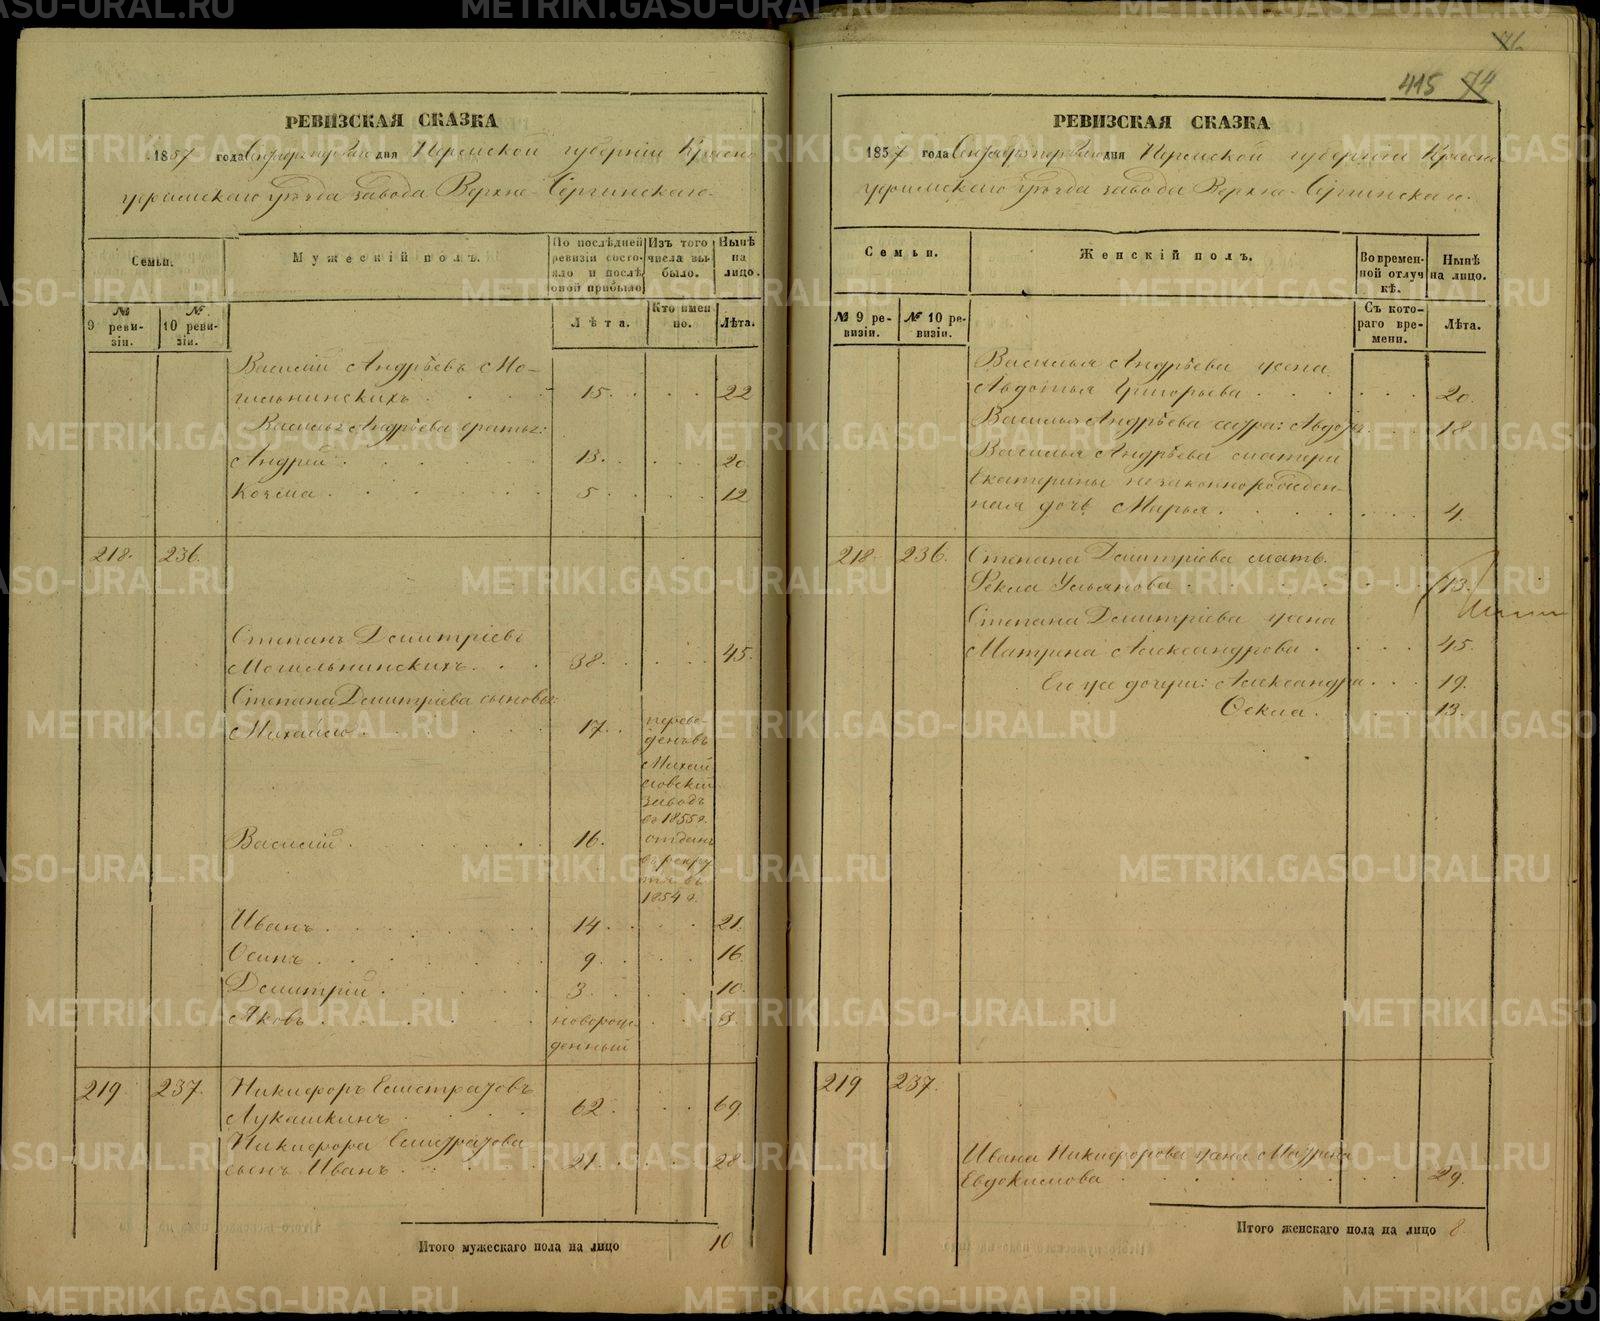 METRIKI.GASO-URAL.RU
415 74
76
РЕВИЗСКАЯ СКАЗКА
1857 года Сентября первого дня Пермской губернiи Красно
уфимскаго уѣзда завода Верхне-Сергинскаго.
Семьи.
Мужескiй полъ.
По послѣдней ревизiи состояло и послѣ оной прибыло
Изъ того числа выбыло.
Нынѣ на лицо.
№ 9 ревизiи.
№ 10 ревизiи.
Лѣта.
Кто именно.
Лѣта.
Василiй Андрѣевъ Мо-
гильнинскихъ 15. 22
Василья Андрѣева братья:
Андрей 13. 20
Козма 5 12
218. 236.
Степанъ Дмитрiевъ
Могильнинскихъ 38. 45.
Степана Дмитрiева сыновья:
Михайло 17. переве-
денъ въ
Михай
ловскiй
заводъ
въ 1855 г.
Василiй 16. отданъ
въ рекру
ты въ
1854 г.
Иванъ 14 21.
Осипъ 9 16
Дмитрiй 3. 10.
Яковъ новорож-
денный 3.
219 237. Никифоръ Емистратовъ
Лукашкинъ 62. 69.
Никифора Емистратова
сынъ Иванъ 21. 28
Итого мужескаго пола на лицо 10
РЕВИЗСКАЯ СКАЗКА
1857 года Сентября первого дня Пермской губернiи Красно
уфимскаго уѣзда завода Верхне-Сергинскаго.
Семьи.
Женскiй полъ.
Во временной отлучкѣ.
Нынѣ на лицо.
№ 9 ревизiи.
№ 10 ревизiи.
Съ котораго времени.
Лѣта.
Василья Андрѣева жена
Авдотья Григорьева 20.
Василья Андрѣева сестра: Авдотья 18
Василья Андрѣева матери
Екатерины незаконнорожден-
ная дочь Марья 4.
218 236. Степана Дмитрiева мать
Фекла Ульянова 73.
Степана Дмитрiева жена
Матрена Александрова 45.
Его же дочери: Александра 19.
Фекла 13.
219 237.
Ивана Никифорова жена Матрена
Евдокимова 29.
Итого женскаго пола на лицо 8.